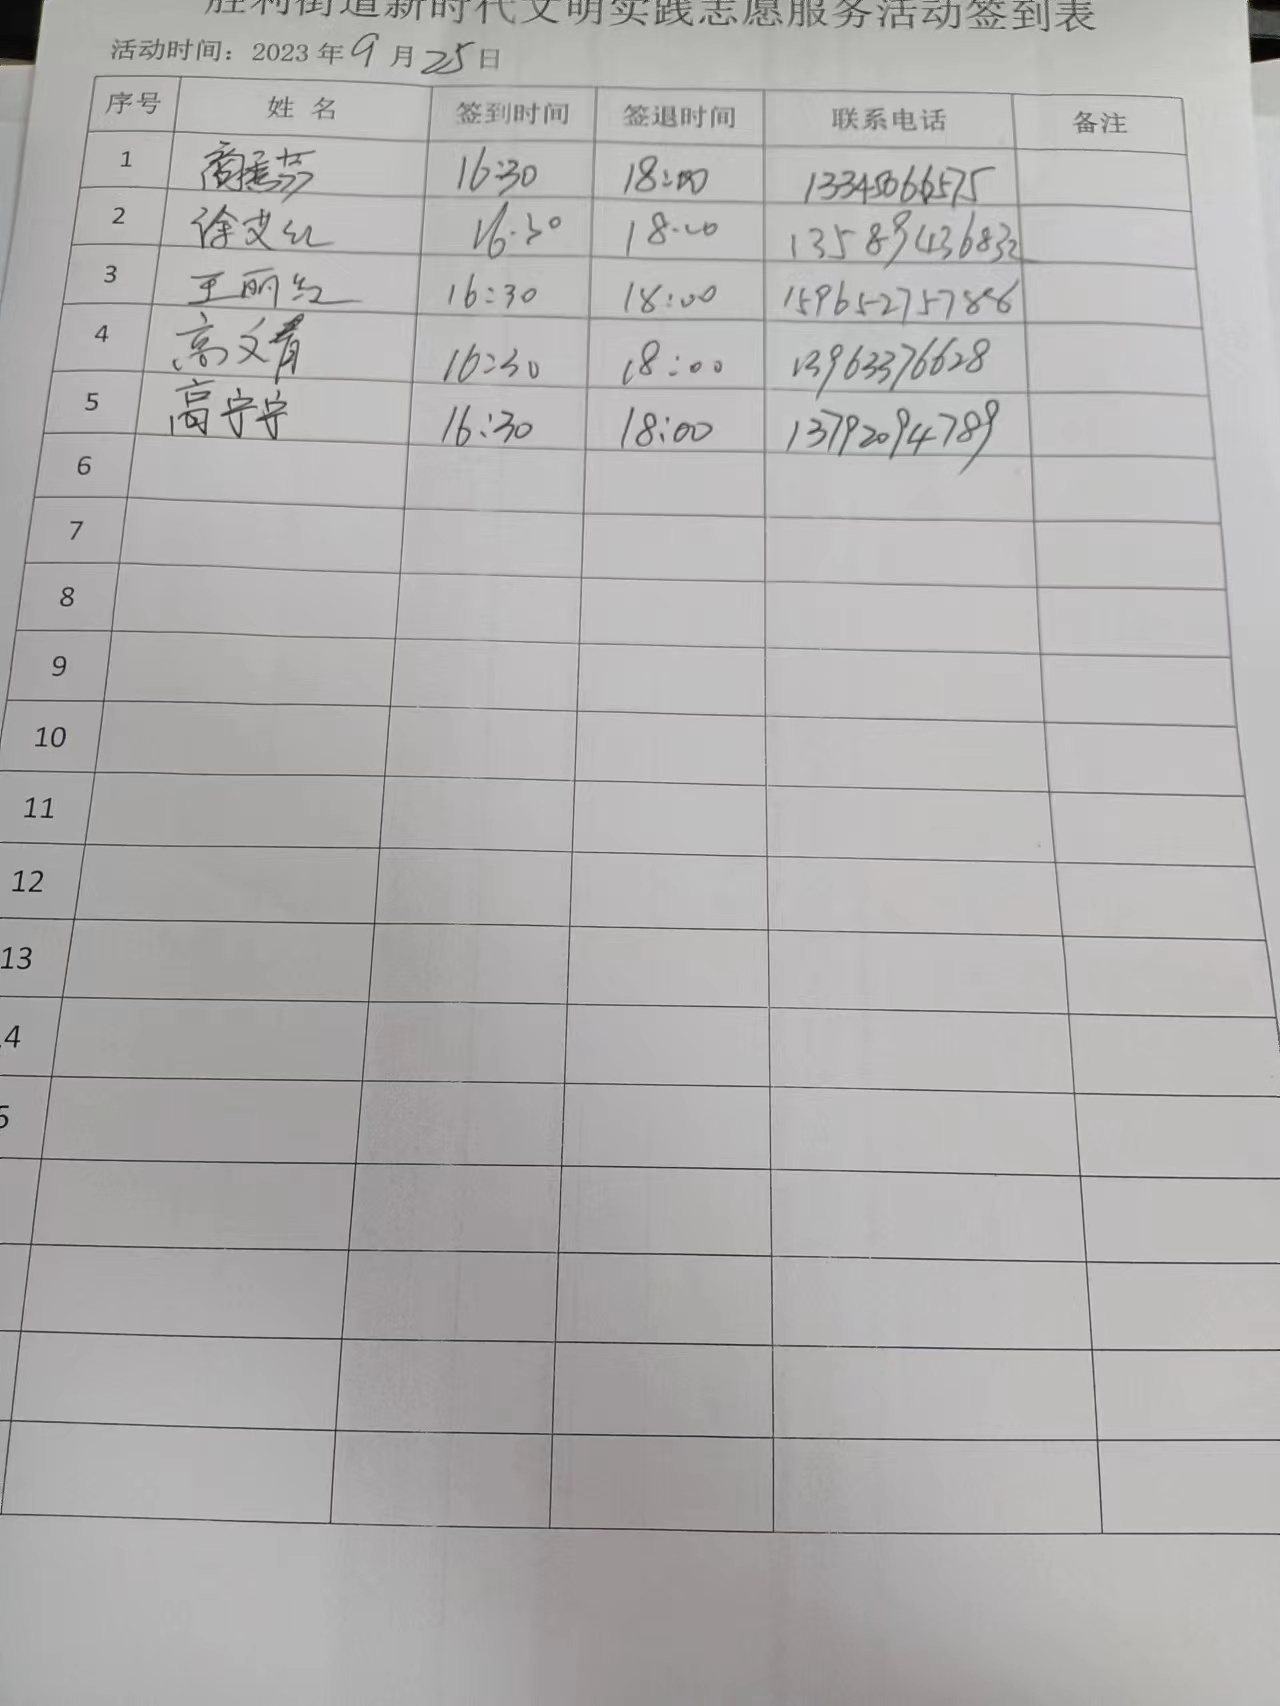 胜利街道新时代文明实践志愿服务活动签到表
活动时间：2023年9月25日
序号 姓 名 签到时间 签退时间 联系电话 备注
1 16:30 18:00 13345066575
2 徐艾红 16:30 18:00 13589436832
3 王丽红 16:30 18:00 15965275786
4 高文青 16:30 18:00 13963376628
5 高宁宁 16:30 18:00 13792094789
6
7
8
9
10
11
12
13
4
5